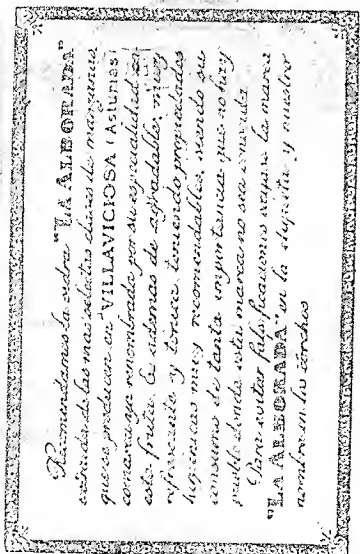 Recomendamos la sidra "LA ALBORADA"
extraida de las mas selectas clases de manzanas
que se producen en VILLAVICIOSA (Asturias)
comarca ya renombrada por su especialidad en
esta fruta, la ademas de agradable, muy
refrescante y tonica teniendo propiedades
higienicas muy recomendables, siendo su
consumo de tanta importancia que no hay
pueblo donde esta marca no sea conocida
Para evitar falsificaciones exijase la marca
"LA ALBORADA" en la etiqueta y nuestro
nombre en los corchos